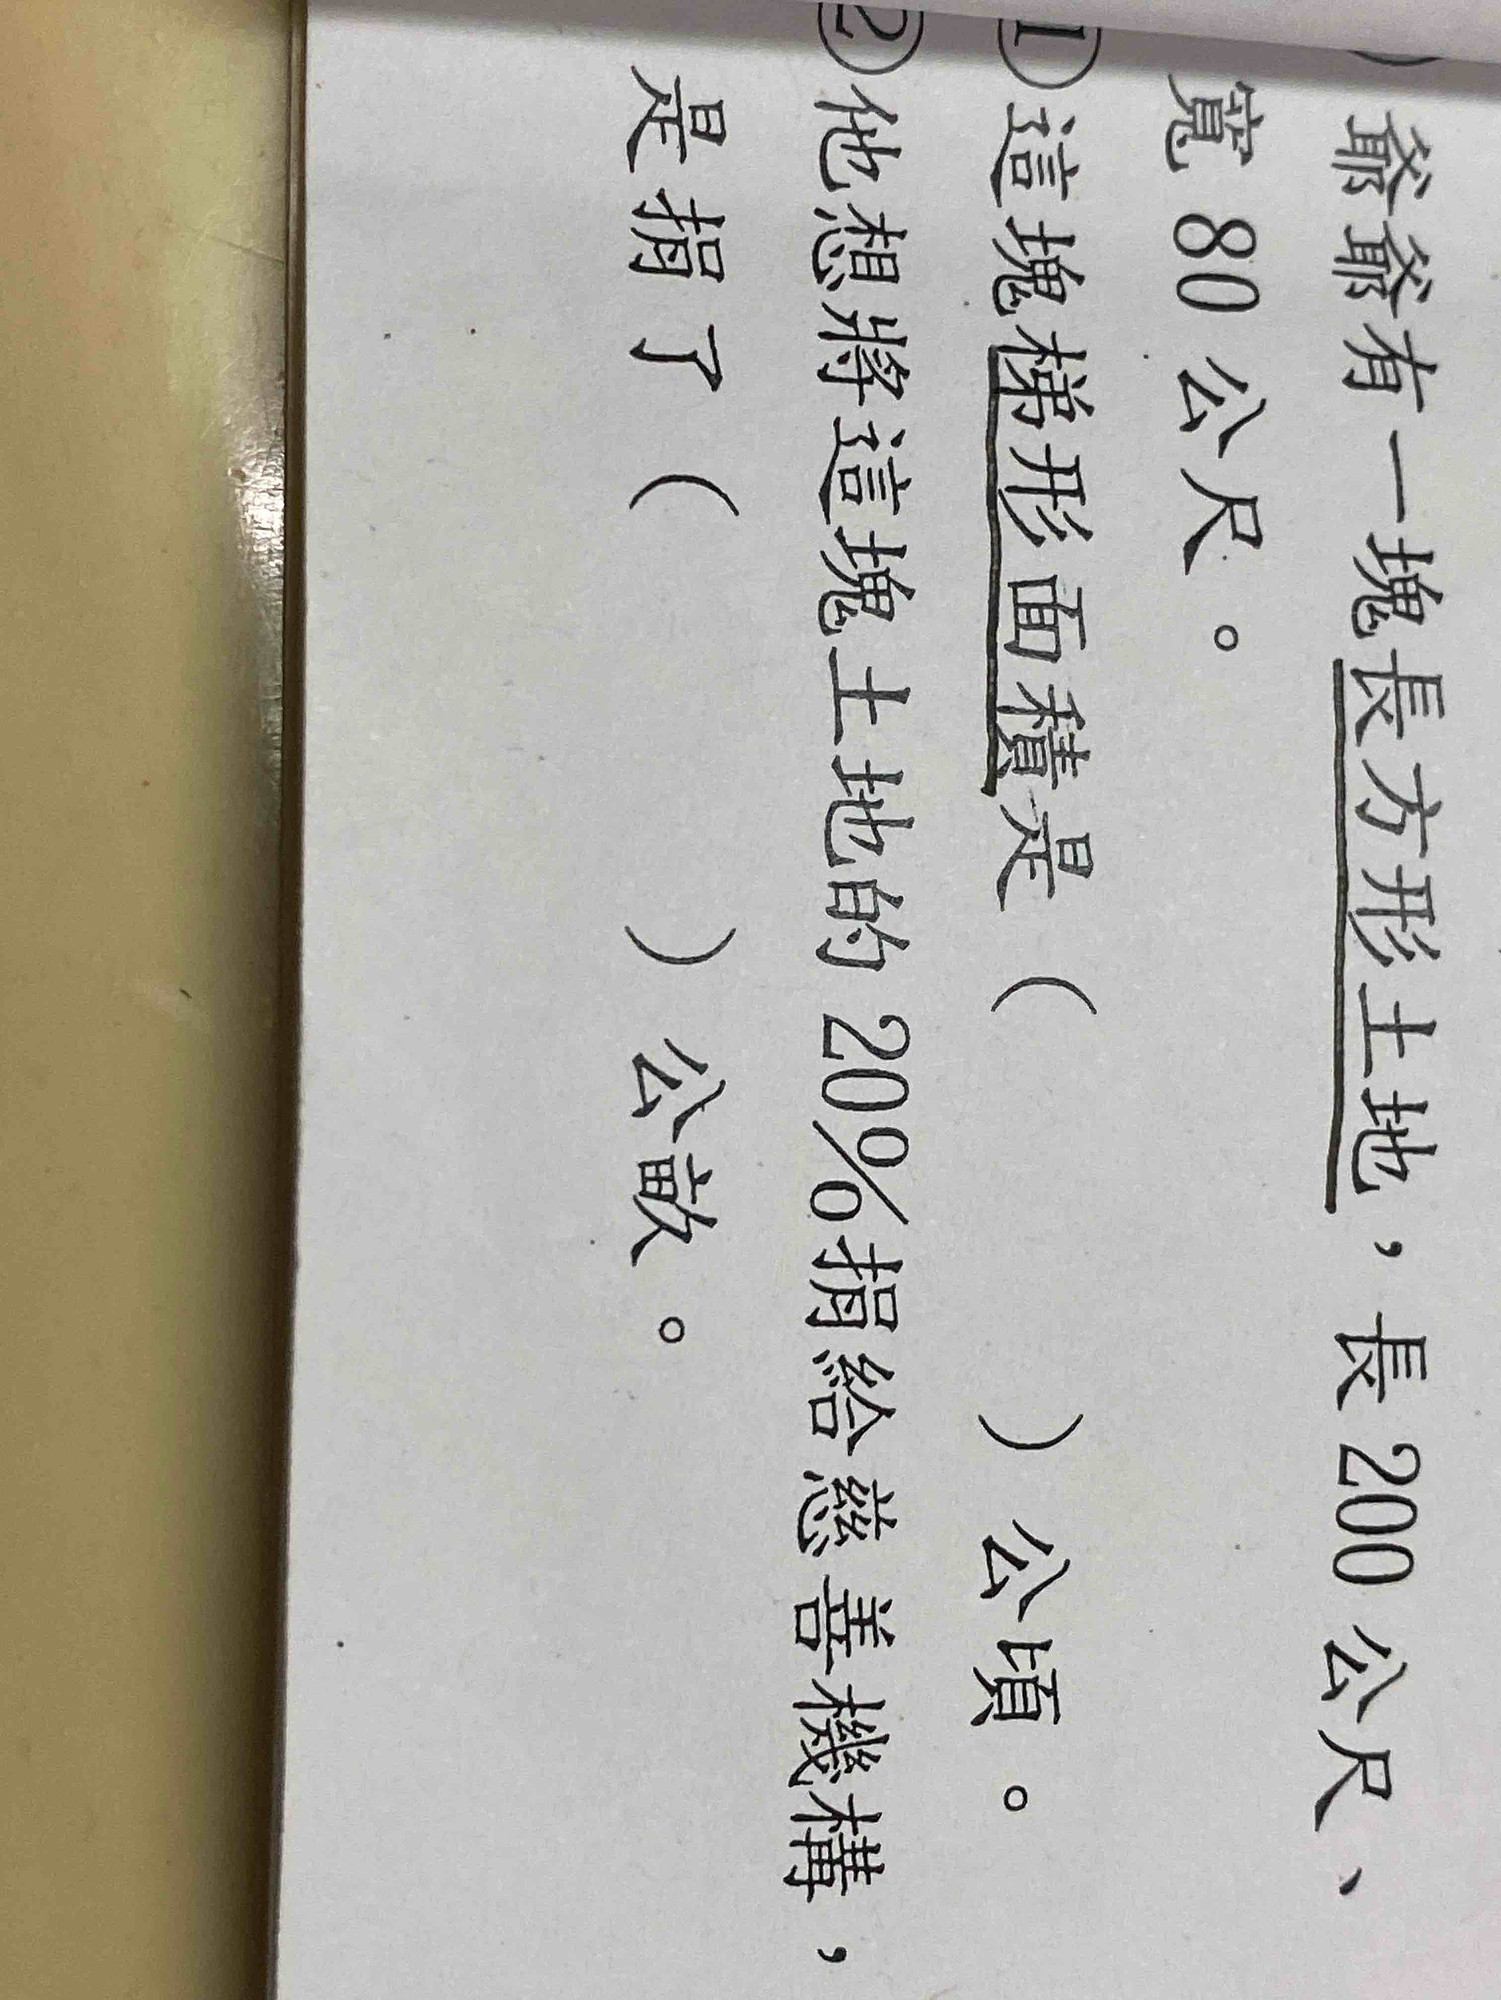 爺爺有一塊長方形土地，長200公尺、
寬80公尺。
①這塊梯形面積是（　　　）公頃。
②他想將這塊土地的20%捐給慈善機構，
是捐了（　　　）公畝。